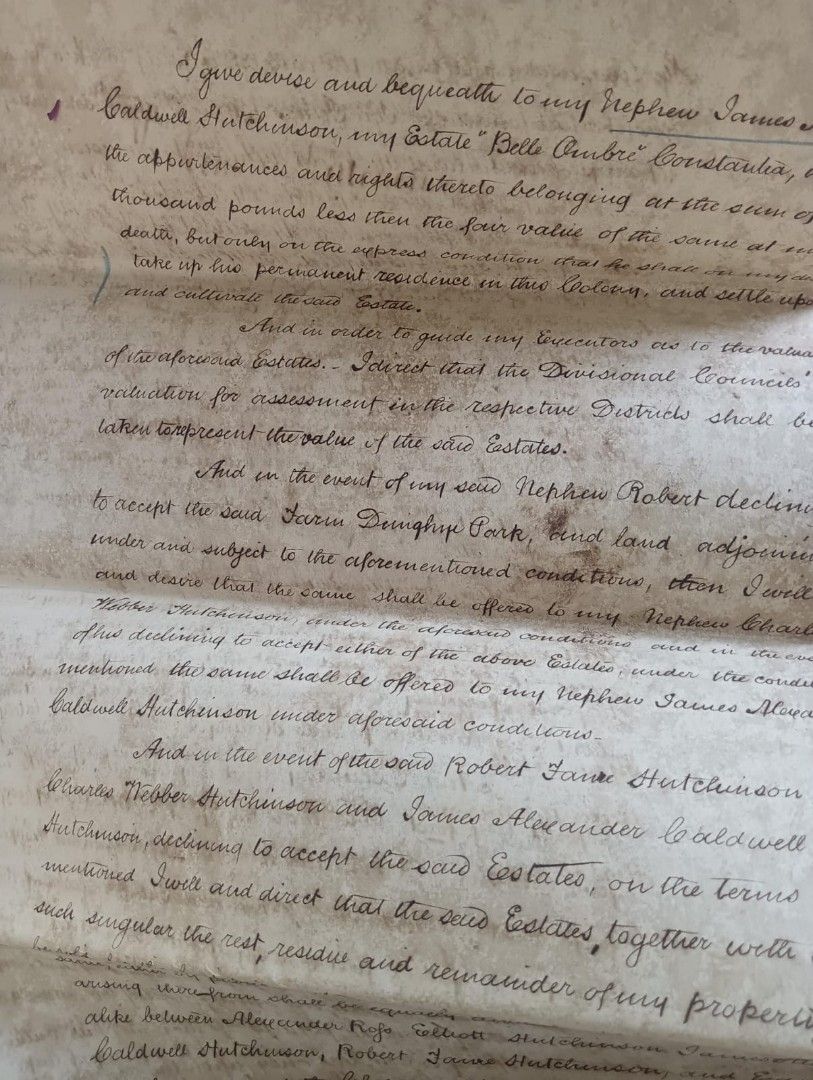 I give devise and bequeath to my Nephew James
Caldwell Hutchinson, my Estate "Belle Ombre" Constantia,
the appurtenances and rights thereto belonging at the sum of
thousand pounds less then the fair value of the same at
death, but only on the express condition that he shall on my
take up his permanent residence in this Colony, and settle
and cultivate the said Estate.
And in order to guide my Executors as to the
of the aforesaid Estates. - I direct that the Divisional Councils'
valuation for assessment in the respective Districts shall be
taken to represent the value of the said Estates.
And in the event of my said Nephew Robert
to accept the said Farm Park, and land
under and subject to the aforementioned conditions, then I will
and desire that the same shall be offered to my Nephew
Webber Hutchinson, under the aforesaid conditions and in the
of his declining to accept either of the above Estates, under the
mentioned the same shall be offered to my Nephew James
Caldwell Hutchinson under aforesaid conditions -
And in the event of the said Robert Hutchinson
Charles Webber Hutchinson and James Alexander Caldwell
Hutchinson, declining to accept the said Estates, on the terms
mentioned I will and direct that the said Estates, together with
such singular the rest, residue and remainder of my
be
arising therefrom shall be equally
alike between Alexander Ross Elliott Hutchinson
Caldwell Hutchinson, Robert Hutchinson, and